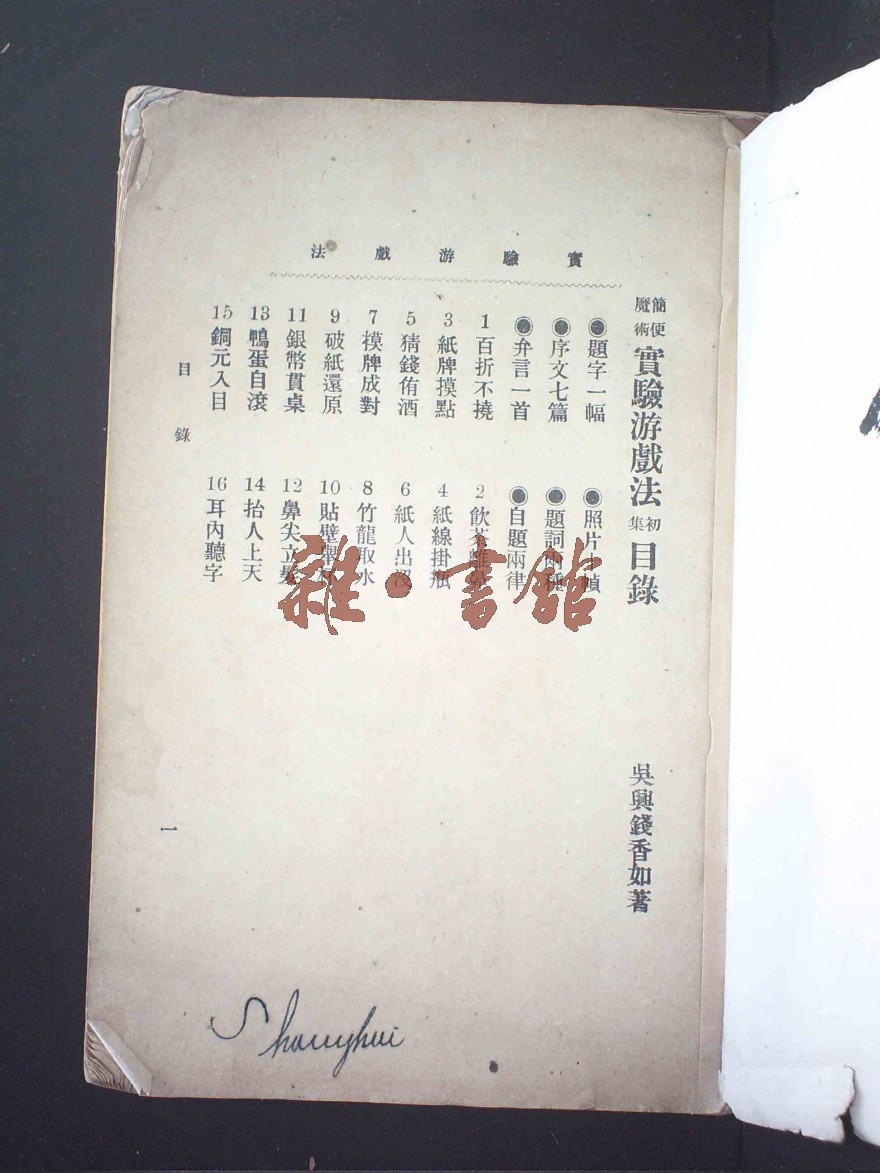 實驗游戲法
簡便魔術 實驗游戲法 初集 目錄
吳興錢香如著
●題字一幅 ●照片十幀
●序文七篇 ●題詞兩種
●弁言一首 ●自題兩律
1 百折不撓 2 飲茶離
3 紙牌摸點 4 紙線掛瓶
5 猜錢侑酒 6 紙人出沒
7 摸牌成對 8 竹龍取水
9 破紙還原 10 貼壁舉杯
11 銀幣貫桌 12 鼻尖立髮
13 鴨蛋自滾 14 抬人上天
15 銅元入目 16 耳內聽字
目錄
一
Shanghai
雜·書館